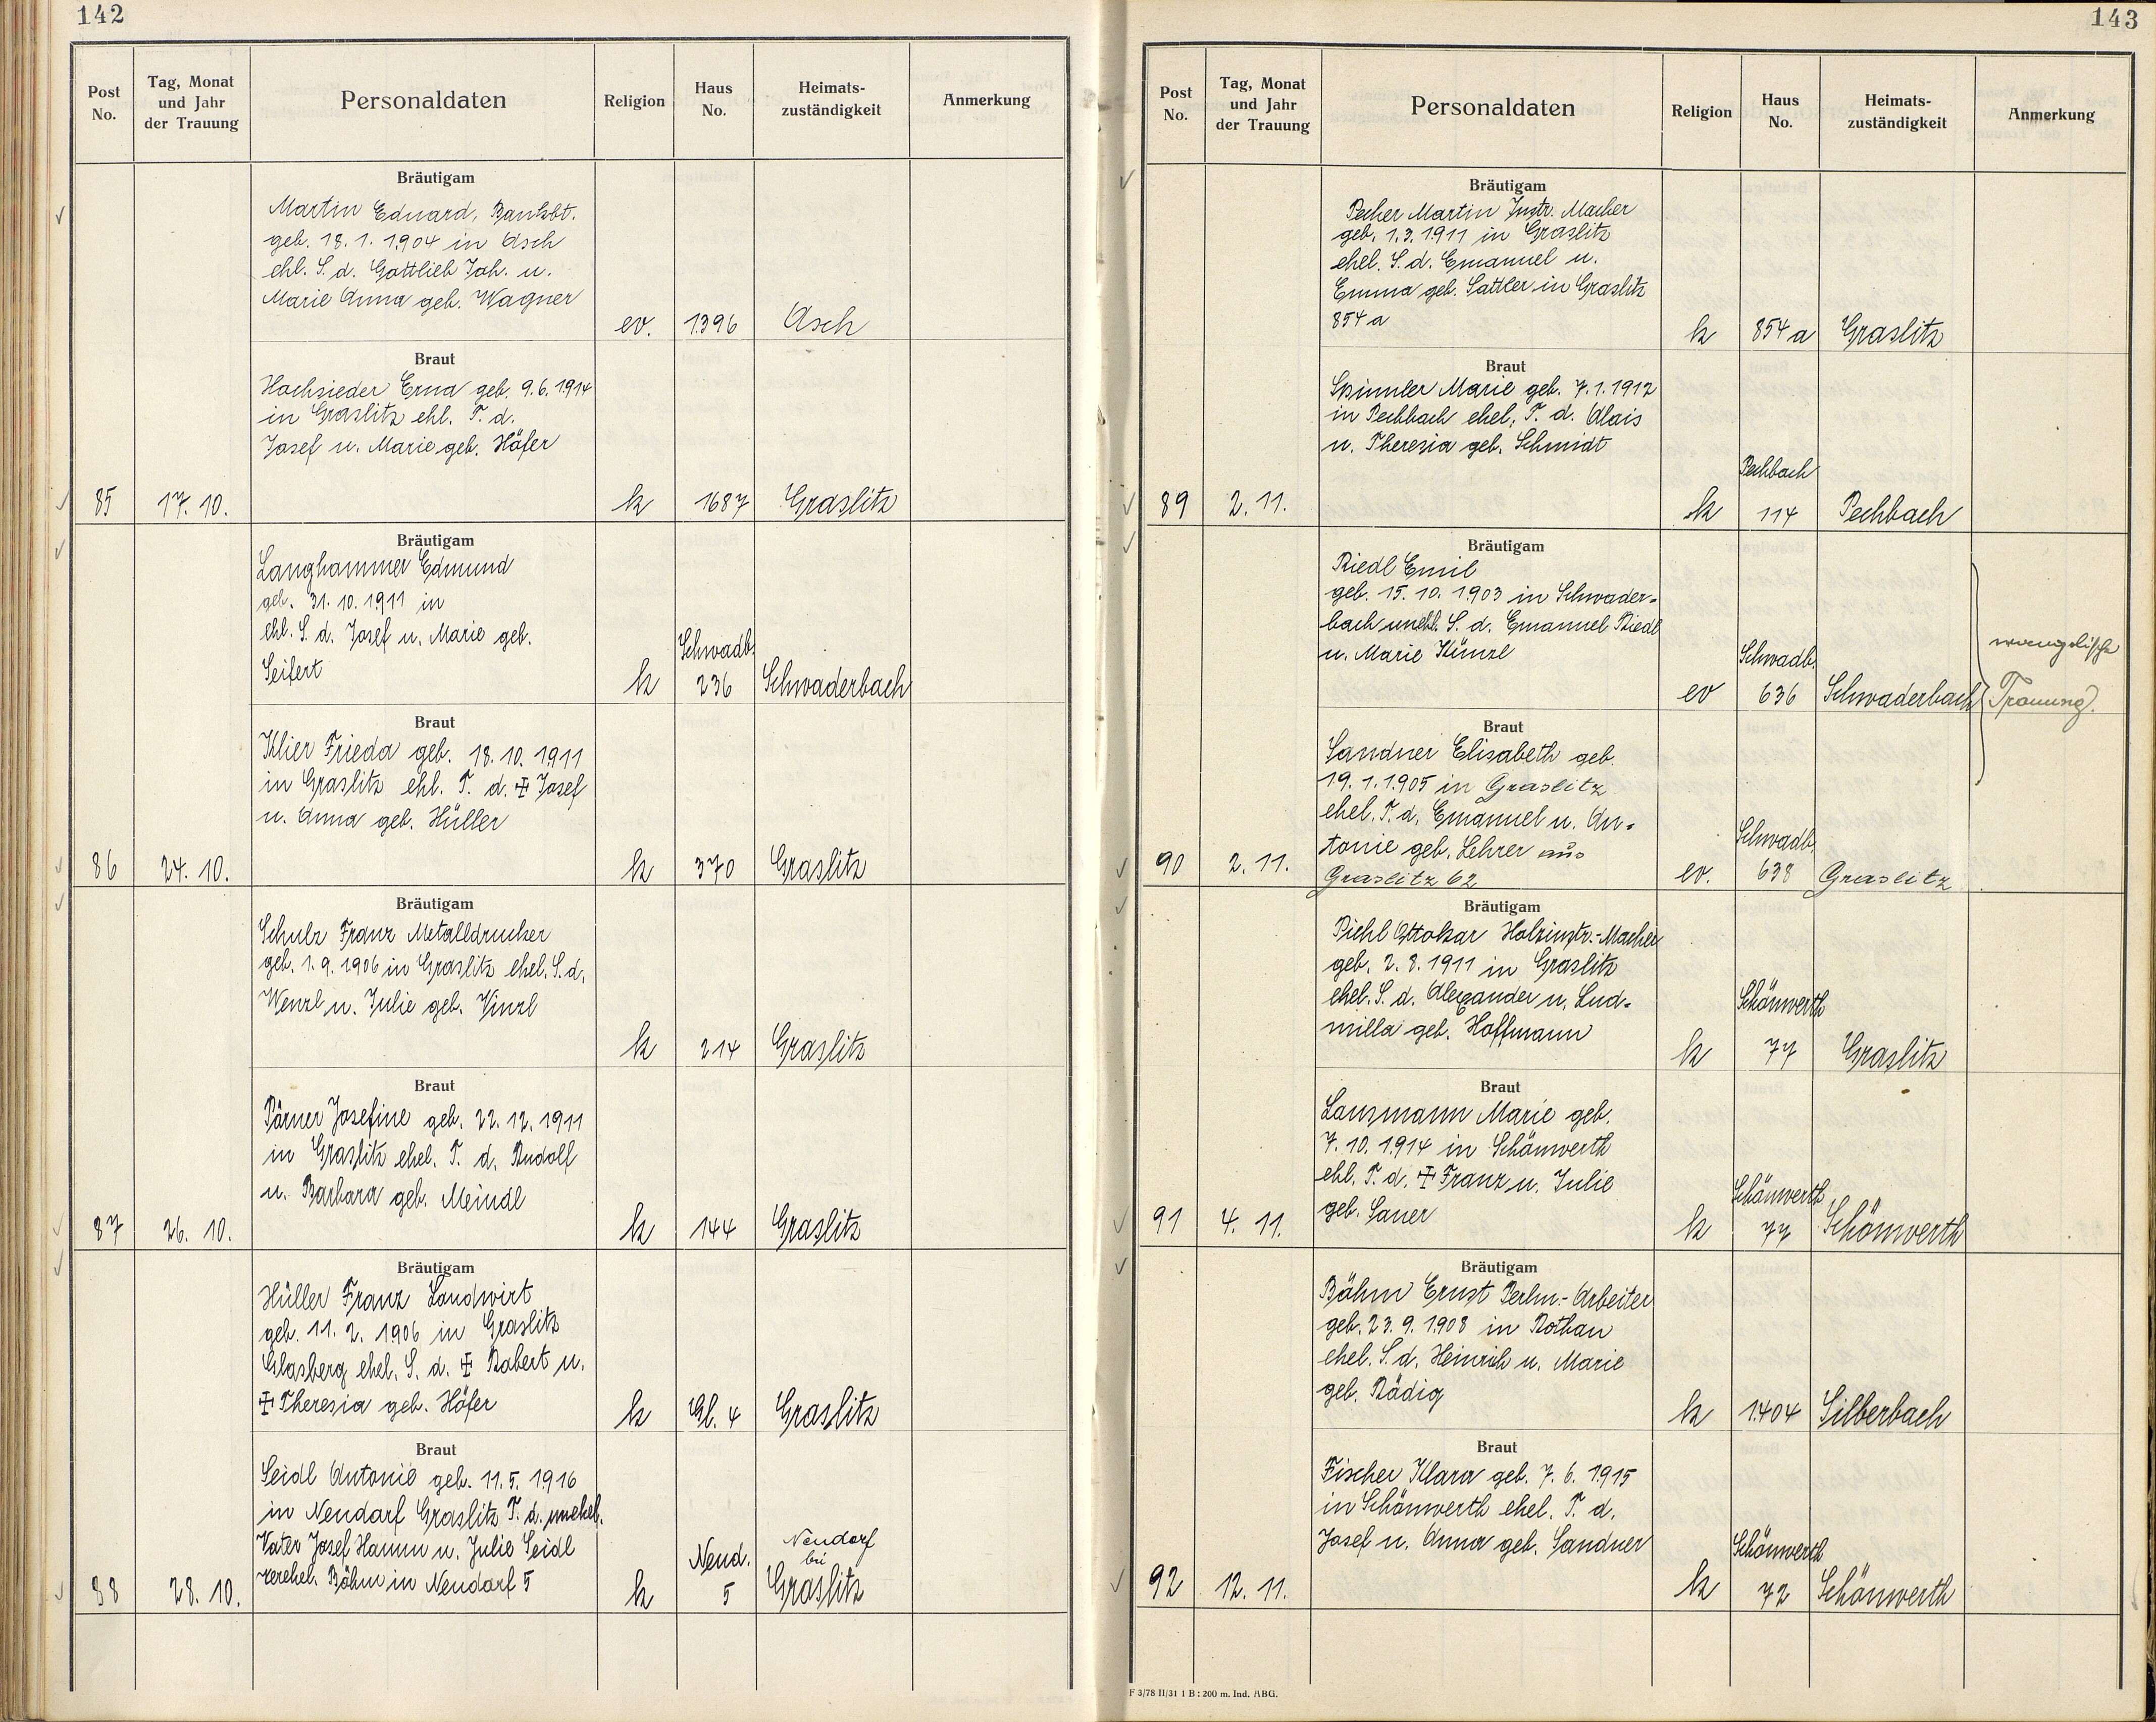 142
Post No.
Tag, Monat und Jahr der Trauung
Personaldaten
Religion
Haus No.
Heimats-zuständigkeit
Anmerkung
Bräutigam
Martin Eduard, Bankbt.
geb. 18. 1. 1904 in Asch
ehl. S. d. Gottlieb Joh. u.
Marie Anna geb. Wagner
ev. 1396 Asch
Braut
Hochsieder Erna geb. 9. 6. 1914
in Graslitz ehl. T. d.
Josef u. Marie geb. Höfer
85 17. 10. k 1687 Graslitz
Bräutigam
Langhammer Edmund
geb. 31. 10. 1911 in
ehl. S. d. Josef u. Marie geb.
Seifert
Schwadb.
k 236 Schwaderbach
Braut
Klier Frieda geb. 18. 10. 1911
in Graslitz ehl. T. d. ✝ Josef
u. Anna geb. Hüller
86 24. 10. k 370 Graslitz
Bräutigam
Schulz Franz Metalldrucker
geb. 1. 9. 1906 in Graslitz ehel. S. d.
Wenzl u. Julie geb. Vinzl
k 214 Graslitz
Braut
Pärner Josefine geb. 22. 12. 1911
in Graslitz ehel. T. d. Rudolf
u. Barbara geb. Meindl
87 26. 10. k 144 Graslitz
Bräutigam
Hüller Franz Landwirt
geb. 11. 2. 1906 in Graslitz
Glasberg ehel. S. d. ✝ Robert u.
✝ Theresia geb. Höfer
k Gl. 4 Graslitz
Braut
Seidl Antonie geb. 11. 5. 1916
in Neudorf Graslitz T. d. unehel.
Vater Josef Hamm u. Julie Seidl
verehel. Böhm in Neudorf 5
Neudorf
bei
88 28. 10. k Neud. 5 Graslitz
143
Post No.
Tag, Monat und Jahr der Trauung
Personaldaten
Religion
Haus No.
Heimats-zuständigkeit
Anmerkung
Bräutigam
Pecher Martin Instr. Macher
geb. 1. 3. 1911 in Graslitz
ehel. S. d. Emanuel u.
Emma geb. Sattler in Graslitz
854 a
k 854 a Graslitz
Braut
Spinnler Marie geb. 7. 1. 1912
in Pechbach ehel. T. d. Alois
u. Theresia geb. Schmidt
Pechbach
89 2. 11. k 114 Pechbach
Bräutigam
Riedl Emil
geb. 15. 10. 1903 in Schwader-
bach unehl. S. d. Emanuel Riedl
u. Marie Künzl
Schwadb.
ev 636 Schwaderbach
evangelische
Trauung.
Braut
Sandner Elisabeth geb.
19. 1. 1905 in Graslitz
ehel. T. d. Emanuel u. An-
tonie geb. Lehrer aus
Graslitz 62
Schwadb.
90 2. 11. ev. 638 Graslitz
Bräutigam
Pichl Ottokar Holzinstr.-Macher
geb. 2. 8. 1911 in Graslitz
ehel. S. d. Alexander u. Lud-
milla geb. Hoffmann
Schönwerth
k 77 Graslitz
Braut
Lanzmann Marie geb.
7. 10. 1914 in Schönwerth
ehl. T. d. ✝ Franz u. Julie
geb. Sauer
Schönwerth
91 4. 11. k 77 Schönwerth
Bräutigam
Böhm Ernst Perlm.-Arbeiter
geb. 23. 9. 1908 in Rothau
ehel. S. d. Heinrich u. Marie
geb. Rödig
k 1404 Silberbach
Braut
Fischer Klara geb. 7. 6. 1915
in Schönwerth ehel. T. d.
Josef u. Anna geb. Sandner
Schönwerth
92 12. 11. k 72 Schönwerth
F 3/78 II/31 1 B : 200 m. Ind. ABG.